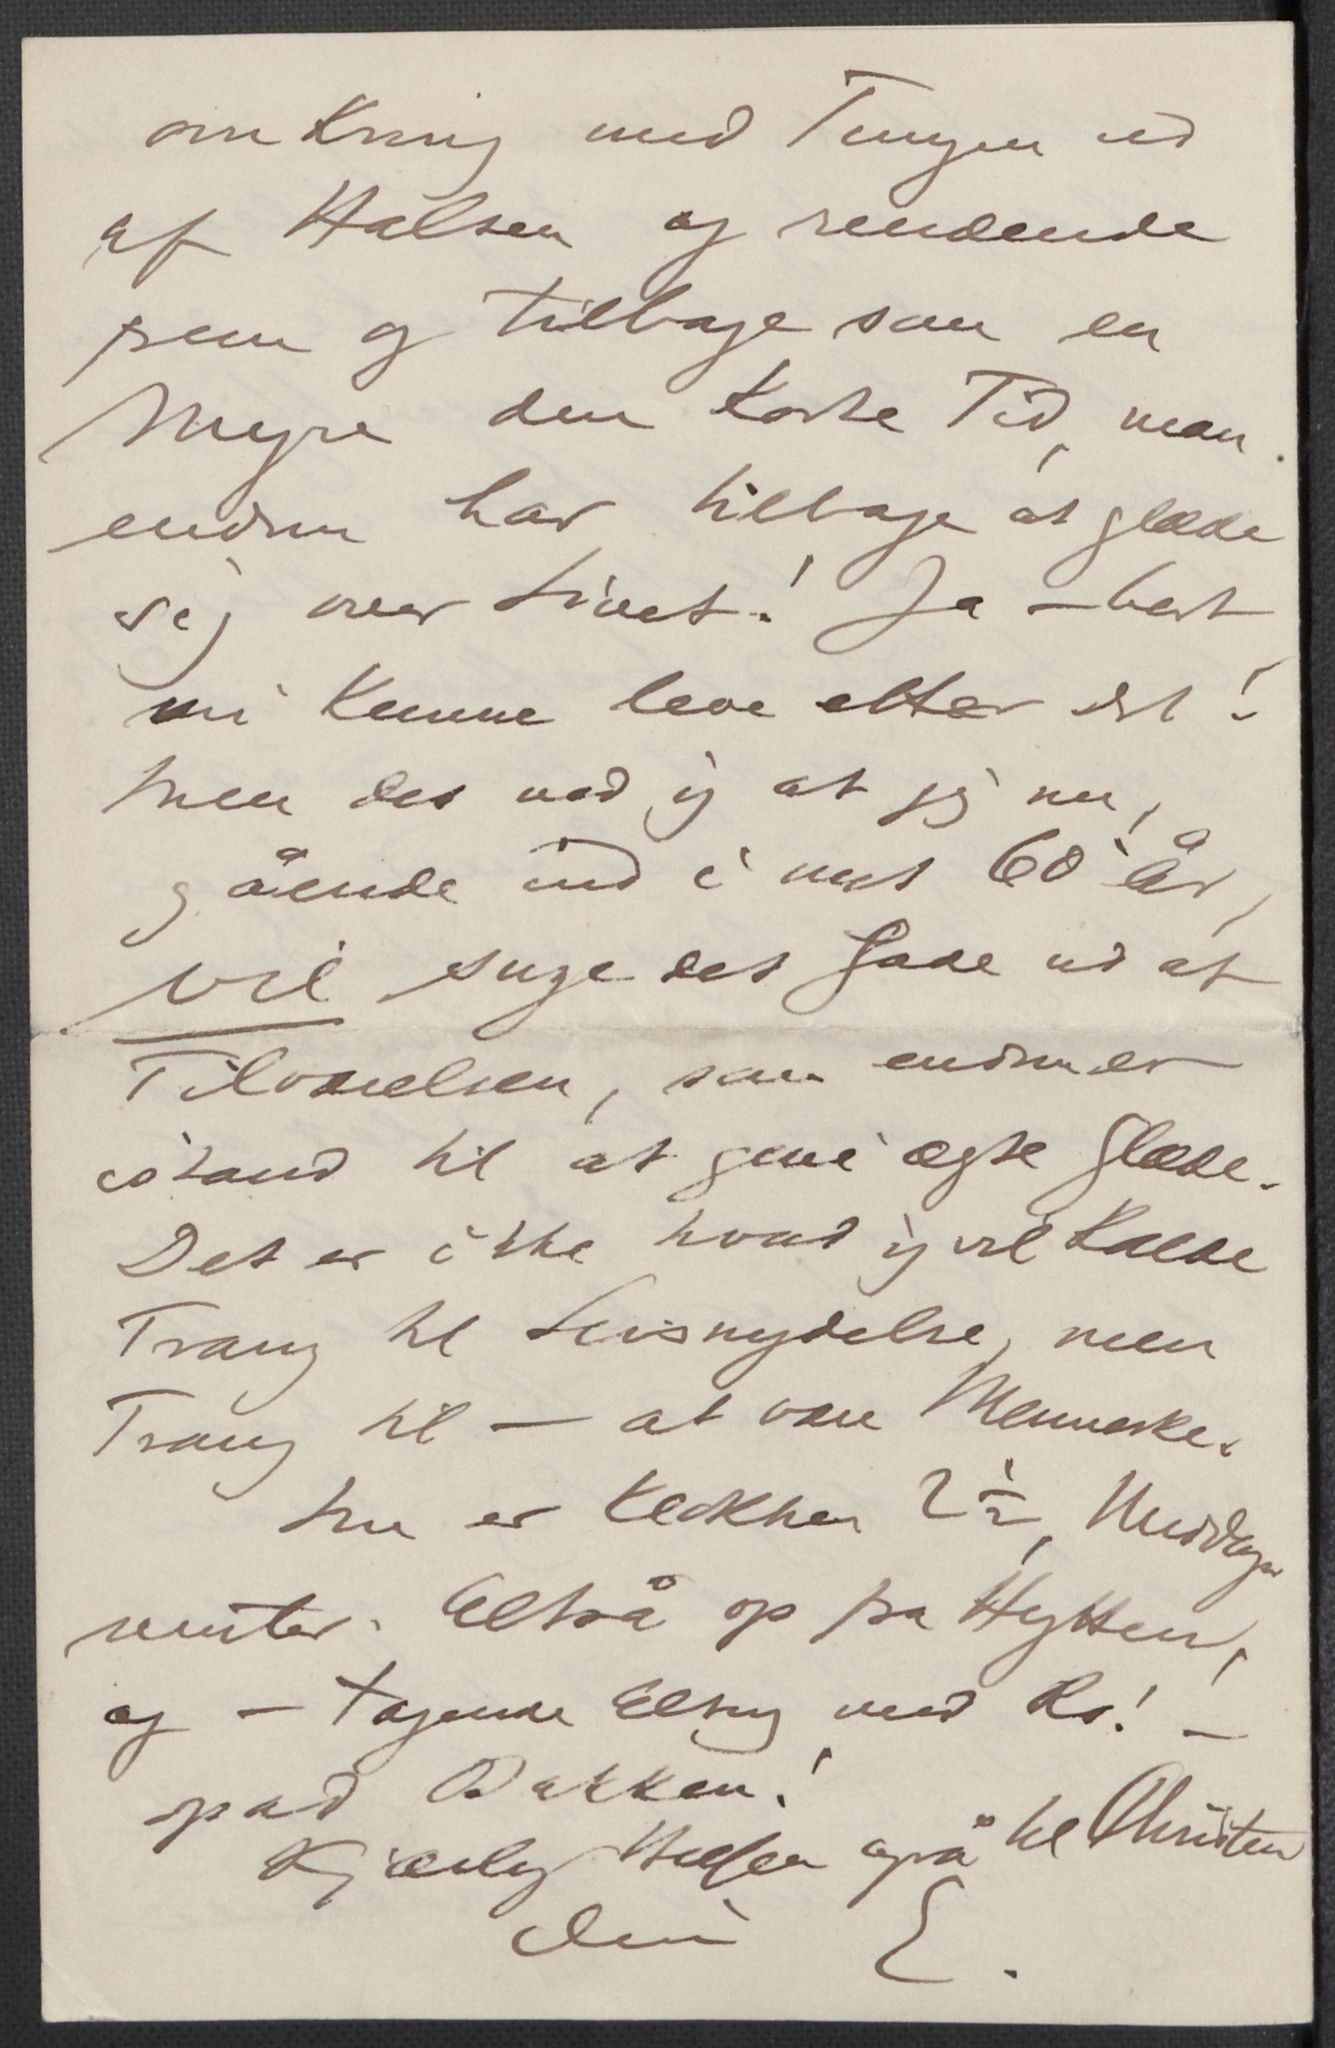 omkring med Tungen ud
af Halsen og rendende
frem og tilbage som en
Myre den korte Tid, man
endnu har tilbage at glæde
sig over Livet! Ja – bart
vi kunne leve etter det!
Men det ved jeg at jeg nu,
gående ind i mit 60 år,
vil suge det Gode ud af
Tilværelsen, som endnu er
istand til at give ægte Glæde.
Det er ikke hvad jeg vil kalde
Trang til Livsnydelse, men
Trang til – at være Menneske.
Nu er Klokken 2 ½, Middagen
venter. Altså op fra Hytten,
og – tagende Alting med Ro! –
opad Bakken!
Kjærlig Hilsen også til Christen
Din E.